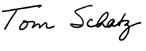 Tom Schatz